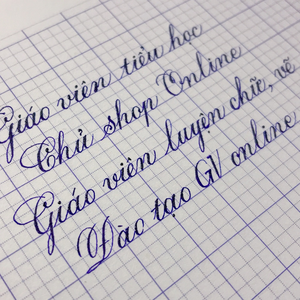 Giáo viên tiểu học
Chủ shop Online
Giáo viên luyện chữ, vẽ
Đào tạo GV online